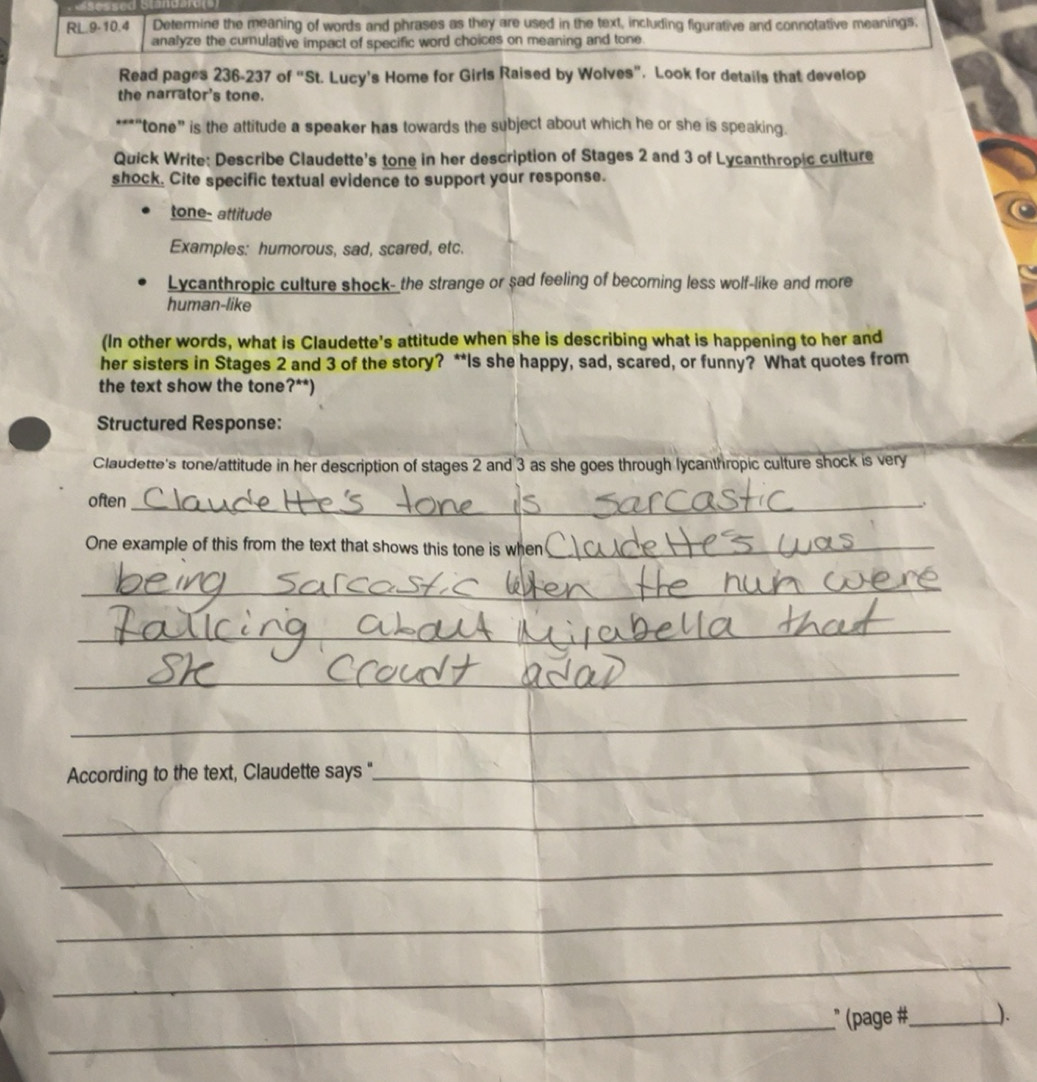 Assessed Standard(s)
RL.9-10.4 Determine the meaning of words and phrases as they are used in the text, including figurative and connotative meanings;
analyze the cumulative impact of specific word choices on meaning and tone.
Read pages 236-237 of “St. Lucy's Home for Girls Raised by Wolves”. Look for details that develop
the narrator's tone.
***“tone” is the attitude a speaker has towards the subject about which he or she is speaking.
Quick Write: Describe Claudette's tone in her description of Stages 2 and 3 of Lycanthropic culture
shock. Cite specific textual evidence to support your response.
• tone- attitude
Examples: humorous, sad, scared, etc.
• Lycanthropic culture shock- the strange or sad feeling of becoming less wolf-like and more
human-like
(In other words, what is Claudette's attitude when she is describing what is happening to her and
her sisters in Stages 2 and 3 of the story? **Is she happy, sad, scared, or funny? What quotes from
the text show the tone?**)
Structured Response:
Claudette's tone/attitude in her description of stages 2 and 3 as she goes through lycanthropic culture shock is very
often Claudette's tone is sarcastic.
One example of this from the text that shows this tone is when Claudette's was
being sarcastic when the nun were
Talking about Mirabella that
She
According to the text, Claudette says “
” (page # ).